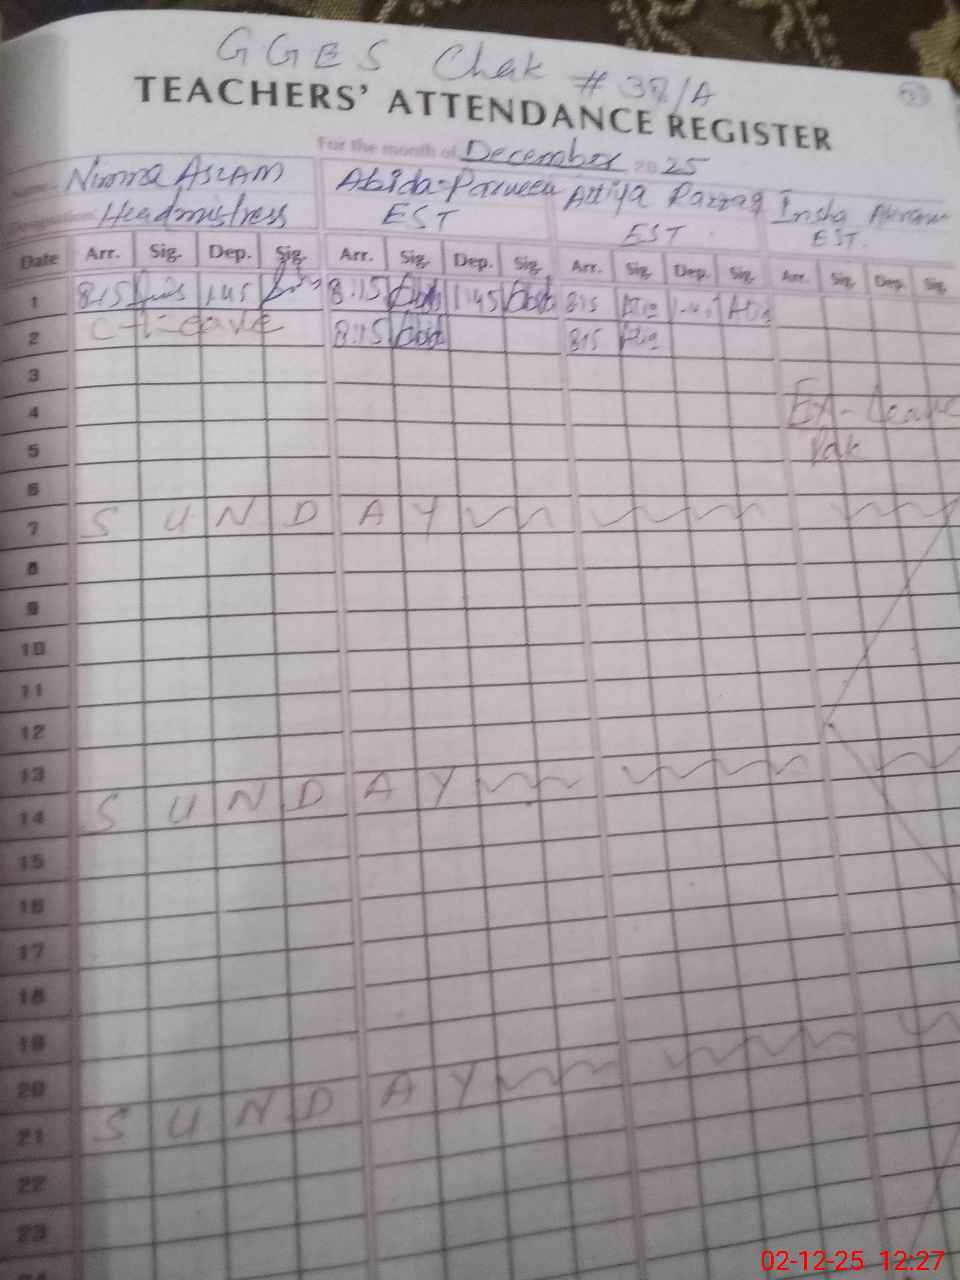 GGES Chak # 38/A
TEACHERS' ATTENDANCE REGISTER
For the month of December 2025
Name: Nimra Aslam Abida Parveen Attiya Razzaq Insha Akram
Designation: Headmistress EST EST EST.
Date Arr. Sig. Dep. Sig. Arr. Sig. Dep. Sig. Arr. Sig. Dep. Sig. Arr. Sig. Dep. Sig.
1 8:15 1:45 8:15 1:45 815
2 C-Leave 8:15 815
3
4 Ex-Leave
5
6
7 SUNDAY
8
9
10
11
12
13
14 SUNDAY
15
16
17
18
19
20
21 SUNDAY
22
23
24
02-12-25 12:27